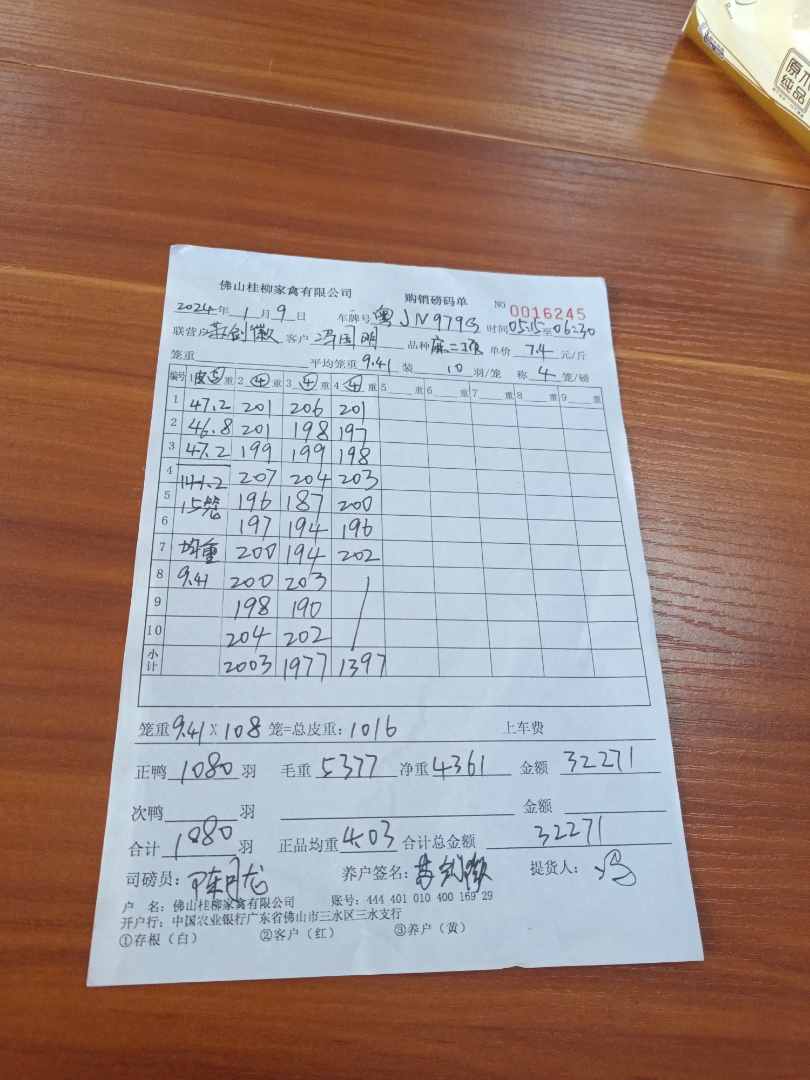 原木
纯品
佛山桂柳家禽有限公司 购销磅码单 NO 0016245
2024年 1月 9日 车牌号 粤JN979G 时间05:15至06:30
联营户 苏剑徽 客户 冯国明 品种 麻二项 单价 7.4 元/斤
笼重 平均笼重 9.41 装 10 羽/笼 称 4 笼/磅
编号 1 皮⑤重 2 ④重 3 ④重 4 ④重 5 重 6 重 7 重 8 重 9 重
1 47.2 201 206 201
2 46.8 201 198 197
3 47.2 199 199 198
4 141.2 207 204 203
5 15笼 196 187 200
6 197 194 196
7 均重 200 194 202
8 9.41 200 203
9 198 190
10 204 202
小计 2003 1977 1397
笼重 9.41 X 108 笼=总皮重: 1016 上车费
正鸭 1080 羽 毛重 5377 净重 4361 金额 32271
次鸭 羽 金额
合计 1080 羽 正品均重 4.03 合计总金额 32271
司磅员: 养户签名: 苏剑徽 提货人: 冯
户 名: 佛山桂柳家禽有限公司 账号: 444 401 010 400 169 29
开户行: 中国农业银行广东省佛山市三水区三水支行
①存根（白） ②客户（红） ③养户（黄）